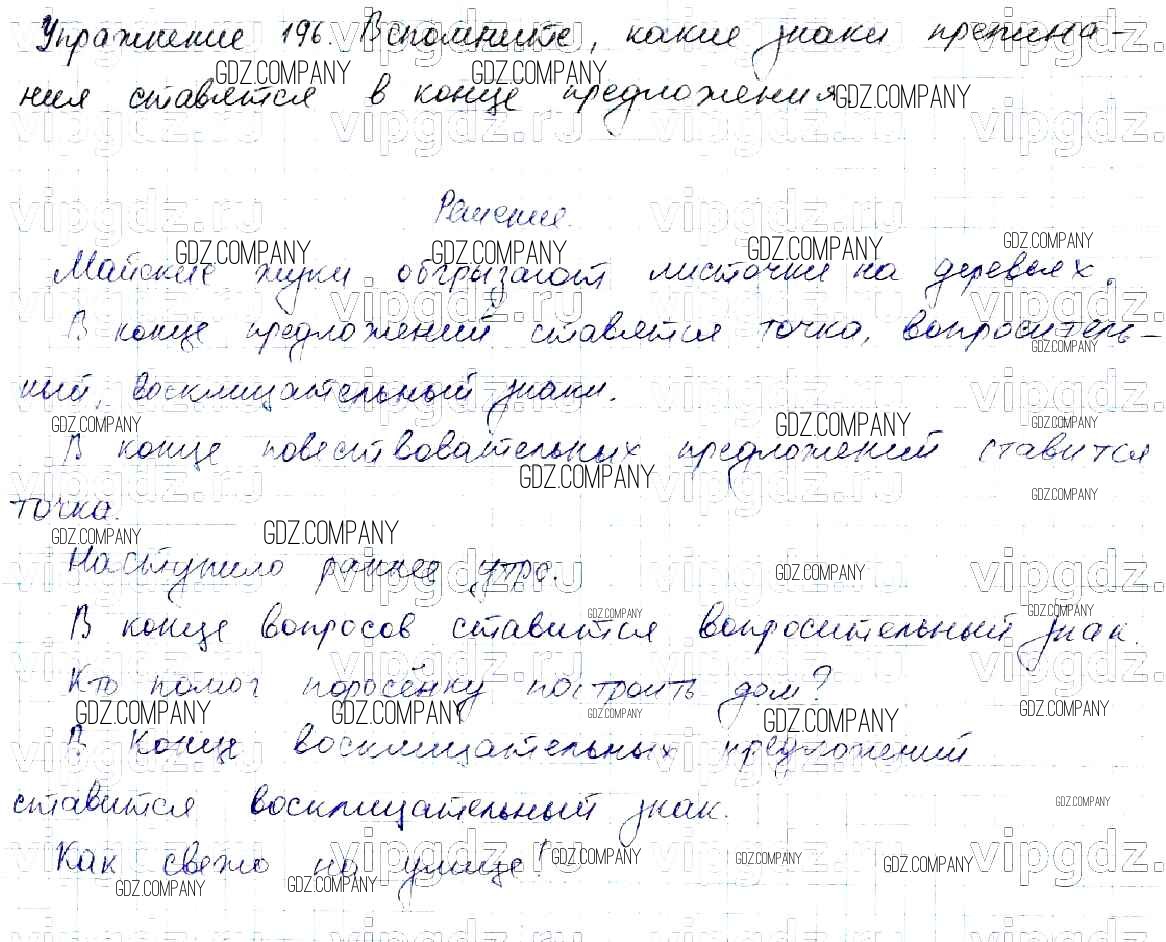 Упражнение 196. Вспомните, какие знаки препина-
ния ставятся в конце предложения.
Решение.
Майские жуки обгрызают листочки на деревьях.
В конце предложений ставятся точка, вопроситель-
ный, восклицательный знаки.
В конце повествовательных предложений ставится
точка.
Наступило раннее утро.
В конце вопросов ставится вопросительный знак.
Кто помог поросёнку построить дом?
В конце восклицательных предложений
ставится восклицательный знак.
Как свежо на улице!